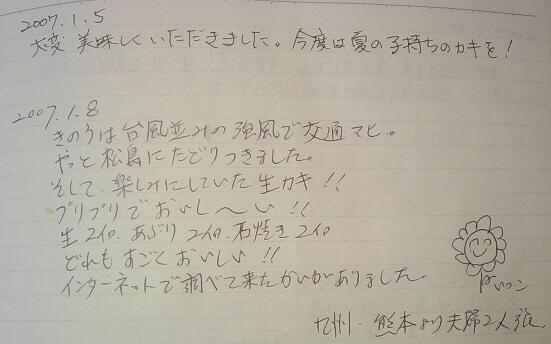 2007.1.5
大変 美味しくいただきました。今度は夏の子持ちのカキを!
2007.1.8
きのうは台風並みの強風で交通マヒ。
やっと松島にたどりつきました。
そして、楽しみにしていた生カキ!!
プリプリでおいし〜い!!
生2コ、あぶり2コ、石焼き2コ
どれもすごくおいしい!!
インターネットで調べて来たかいがありました。
九州・熊本より夫婦2人旅